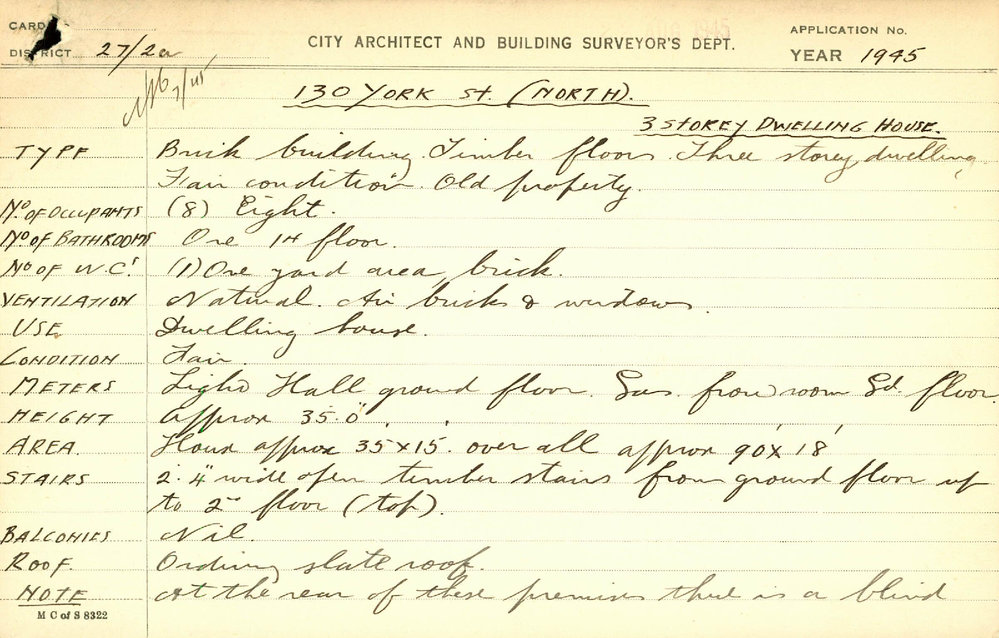 CARD
APPLICATION No.
DISTRICT 27/2a
CITY ARCHITECT AND BUILDING SURVEYOR'S DEPT.
YEAR 1945
7/45
130 YORK St. (NORTH).
3 STOREY DWELLING HOUSE.
TYPE Brick building. Timber floors. Three storey dwelling
Fair condition. Old property.
No. OF OCCUPANTS (8) Eight.
No. OF BATHROOMS One 1st floor.
No OF W.C.s (1) One yard area, brick.
VENTILATION Natural. Air bricks & windows.
USE Dwelling house.
CONDITION Fair.
METERS Light Hall ground floor. Gas front room Gd. floor.
HEIGHT approx 35'.0"
AREA. House approx 35' x 15'. over all approx 90' x 18'
STAIRS 2'.4" wide open timber stairs from ground floor up
to 2nd floor (top).
BALCONIES Nil.
ROOF. Ordinary slate roof.
NOTE At the rear of these premises there is a blind
M C of S 8322